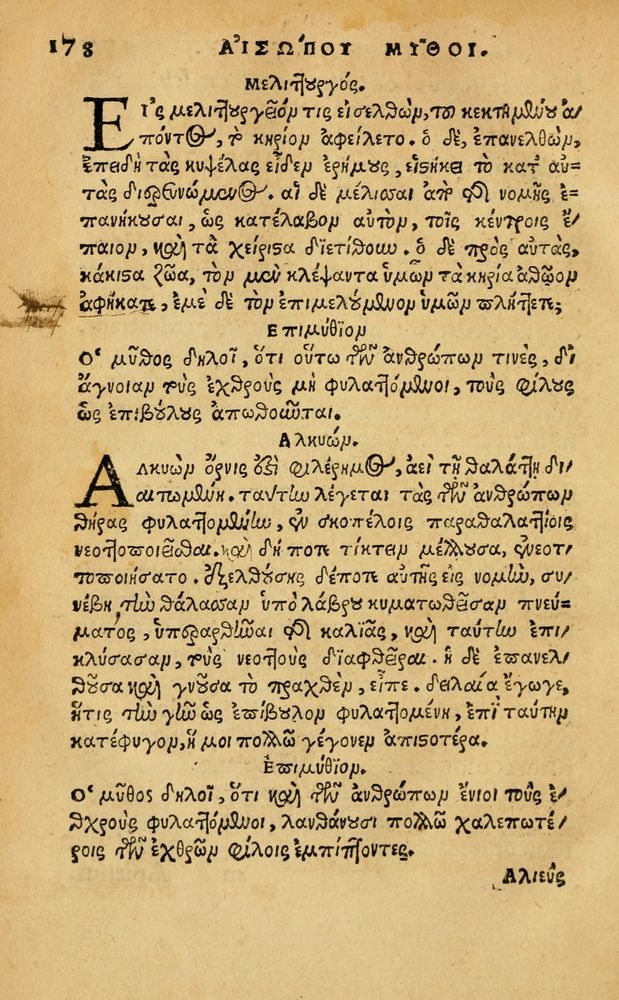 178 ΑἸΣΩ´ΠΟΥ ΜΥ͂ΘΟΙ.
Μελιττουργός.
ΕΙ᾽ς μελιττουργεῖον τις εἰσελθὼν, τοῦ κεκτημένου ἀ-
πόντος, τὸ κηρίον ἀφείλετο. ὁ δὲ, ἐπανελθὼν,
ἐπειδὴ τὰς κυψέλας εἶδεν ἐρήμους, εἱστήκει τὸ κατ᾽ αὐ-
τὰς διερευνώμενος. αἱ δὲ μέλισσαι ἀπὸ τῆς νομῆς ἐ-
πανήκουσαι, ὡς κατέλαβον αὐτὸν, τοῖς κέντροις ἔ-
παιον, καὶ τὰ χείριστα διετίθουν. ὁ δὲ πρὸς αὐτὰς,
κάκιστα ζῶα, τὸν μὲν κλέψαντα ὑμῶν τὰ κηρία ἀθῶον
ἀφήκατε, ἐμὲ δὲ τὸν ἐπιμελούμενον ὑμῶν πλήττετε;
Ἐπιμύθιον
Ο῾ μῦθος δηλοῖ, ὅτι οὕτω τῶν ἀνθρώπων τινὲς, δι᾽
ἄγνοιαν τοὺς ἐχθροὺς μὴ φυλαττόμενοι, τοὺς φίλους
ὡς ἐπιβούλους ἀπωθοῦνται.
Αλκυών.
ΑΛκυὼν ὄρνις ἐστὶ φιλέρημος, ἀεὶ τῇ θαλάττῃ δι-
αιτωμένη. ταύτην λέγεται τὰς τῶν ἀνθρώπων
θήρας φυλαττομένην, ἐν σκοπέλοις παραθαλαττίοις
νεοττοποιεῖσθαι. καὶ δή ποτε τίκτειν μέλλουσα, ἐνεοτ-
τοποιήσατο. ἐξελθούσης δέποτε αὐτῆς εἰς νομὴν, συ-
νέβη τὴν θάλασσαν ὑπὸ λάβρου κυματωθεῖσαν πνεύ-
ματος, ὑπεραρθῆναι τῆς καλιᾶς, καὶ ταύτην ἐπι-
κλύσασαν, τοὺς νεοττοὺς διαφθεῖραι. ἡ δὲ ἐπανελ-
θοῦσα καὶ γνοῦσα τὸ πραχθὲν, εἶπε. δειλαία ἔγωγε,
ἥτις τὴν γῆν ὡς ἐπίβουλον φυλαττομένη, ἐπὶ ταύτην
κατέφυγον, ἥ μοι πολλῷ γέγονεν ἀπιστοτέρα.
Ἐπιμύθιον.
Ο῾ μῦθος δηλοῖ, ὅτι καὶ τῶν ἀνθρώπων ἔνιοι τοὺς ἐ-
χθροὺς φυλαττόμενοι, λανθάνουσι πολλῷ χαλεπωτέ-
ροις τῶν ἐχθρῶν φίλοις ἐμπίπτοντες.
Αλιεῦς